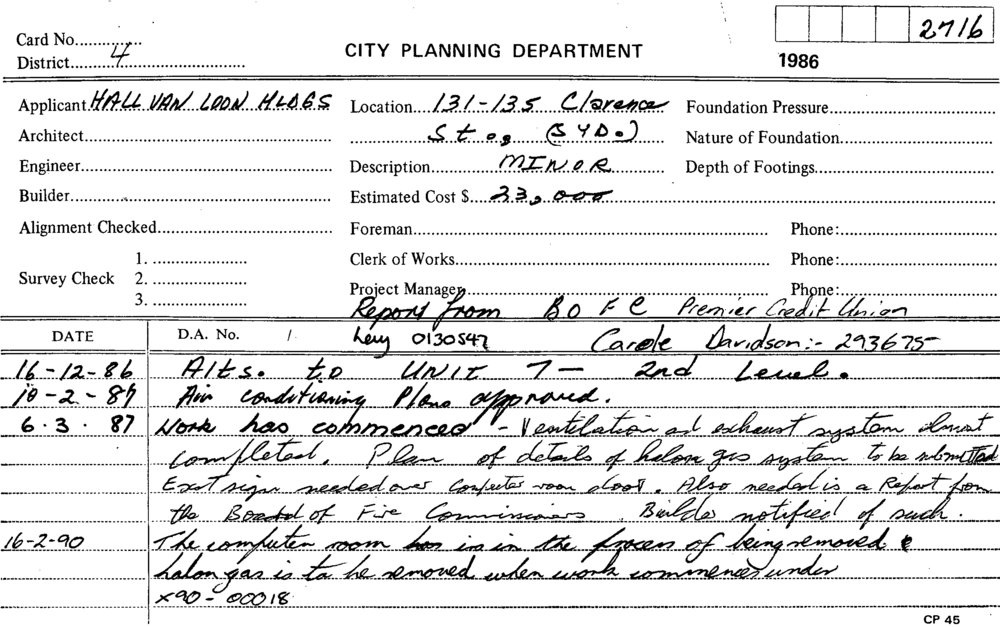 Card No............... CITY PLANNING DEPARTMENT 2716
District....4.... 1986
Applicant HALL VAN LOON HLDGS Location....131-135 Clarence Foundation Pressure
Architect St., (SYD.) Nature of Foundation
Engineer Description MINOR Depth of Footings
Builder Estimated Cost $ 23,000
Alignment Checked Foreman Phone:
1. Clerk of Works Phone:
Survey Check 2.
3. Project Manager Phone:
Report from B O F C Premier Credit Union
DATE D.A. No. / Levy 0130547 Carole Davidson:- 293675
16-12-86 Alts. to UNIT 7 - 2nd Level.
10-2-87 Air conditioning Plans approved.
6.3.87 Work has commenced - Ventilation ad exhaust system almost
completed. Plan of details of halon gas system to be submitted
Exit sign needed over computer room door. Also needed is a Report from
the Board of Fire Commissioners Builder notified of such.
16-2-90 The computer room is in the process of being removed &
halon gas is to be removed when work commences under
x90-00018
CP 45